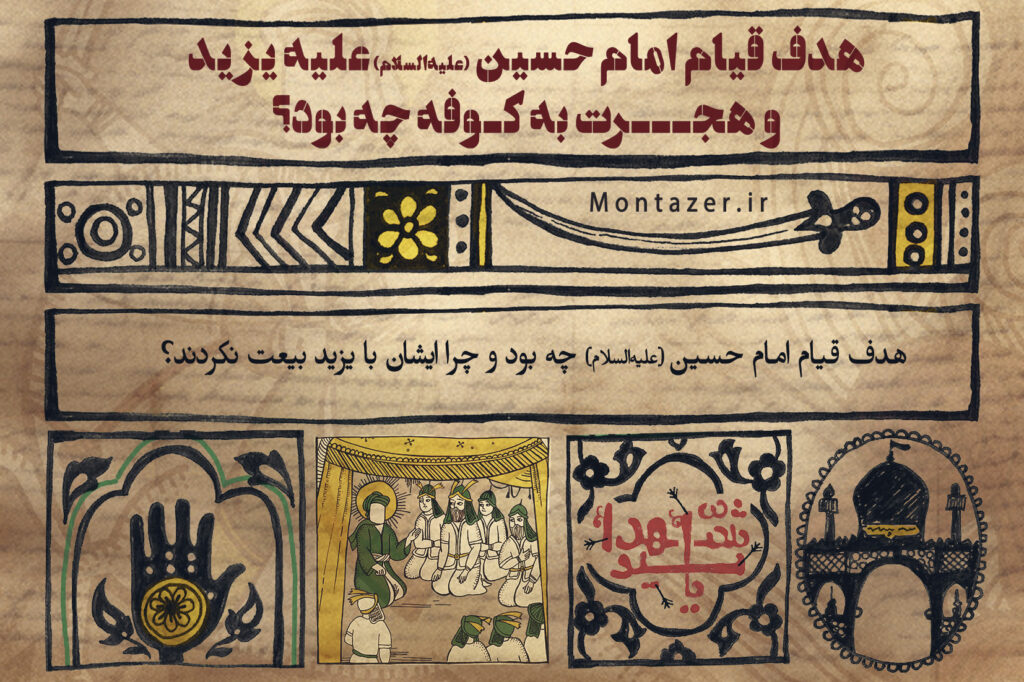 هدف قیام امام حسین (علیه‌السلام) علیه یزید
و هجرت به کوفه چه بود؟
Montazer.ir
هدف قیام امام حسین (علیه‌السلام) چه بود و چرا ایشان با یزید بیعت نکردند؟
یا سید الشهدا